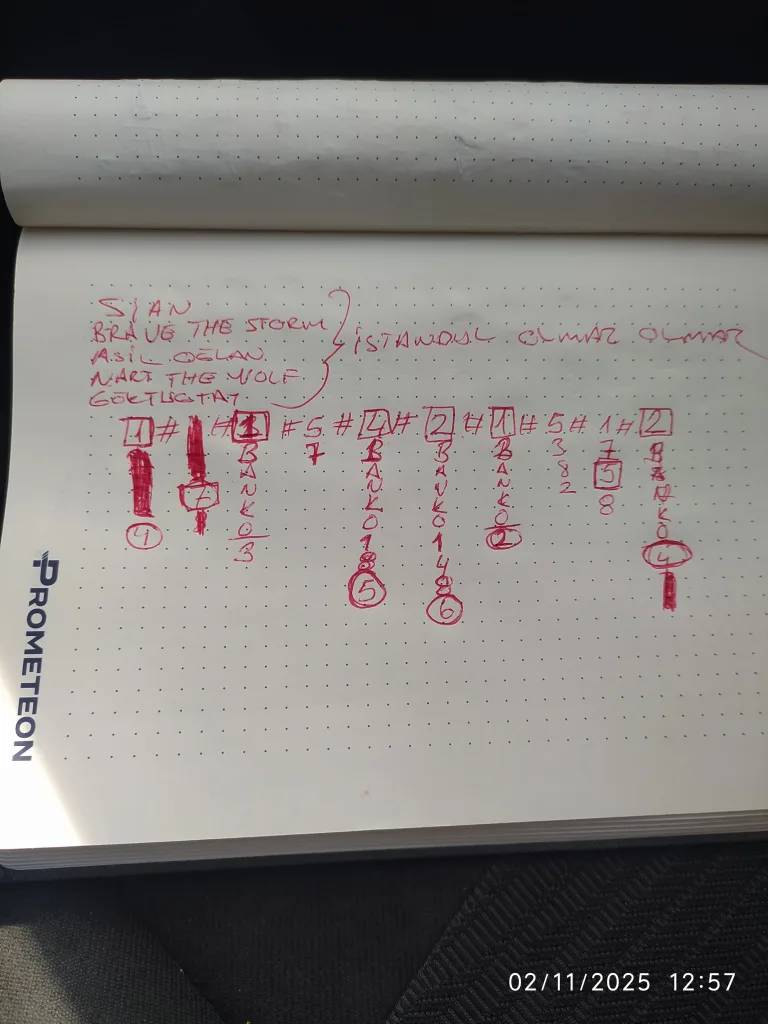 SJAN
BRAVE THE STORM
ASİL OĞLAN
NART THE WOLF
GÖKTUGTAY
İSTANBUL OLMAZ OLMAZ
1 # # 1 # 5 # 4 # 2 # 1 # 5 # 1 # 2
4
7
BANKO
3
7
BANKO
1
8
5
BANKO
1
4
8
6
BANKO
2
3
8
2
7
5
8
BANKO
4
PROMETEON
02/11/2025 12:57